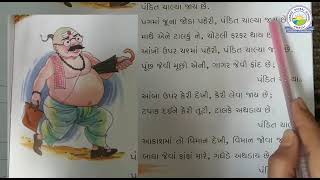 પંડિત ચાલ્યા જાય છે.
પગમાં જૂના જોડા પહેરી, પંડિત ચાલ્યા જાય છે;
માથે એને ટાલકું ને, ચોટલી ફરફર થાય છે
આંખો ઉપર ચશ્માં પહેરી, પંડિત ચાલ્યા જાય છે;
પૂંછ જેવી મૂછો એની, ગાગર જેવી ફાંદ છે;
પંડિત ચા
આંબા ઉપર કેરી દેખી, કેરી લેવા જાય છે;
ટપાક દઈને કેરી તૂટી, ટાલકે અથડાય છે;
પંડિત ચાલ
આકાશમાં તો વિમાન દેખી, વિમાન જોવા જ
આઘા જેવાં ફાંફાં મારે, ગધેડે અથડાય છે;
પંડિ